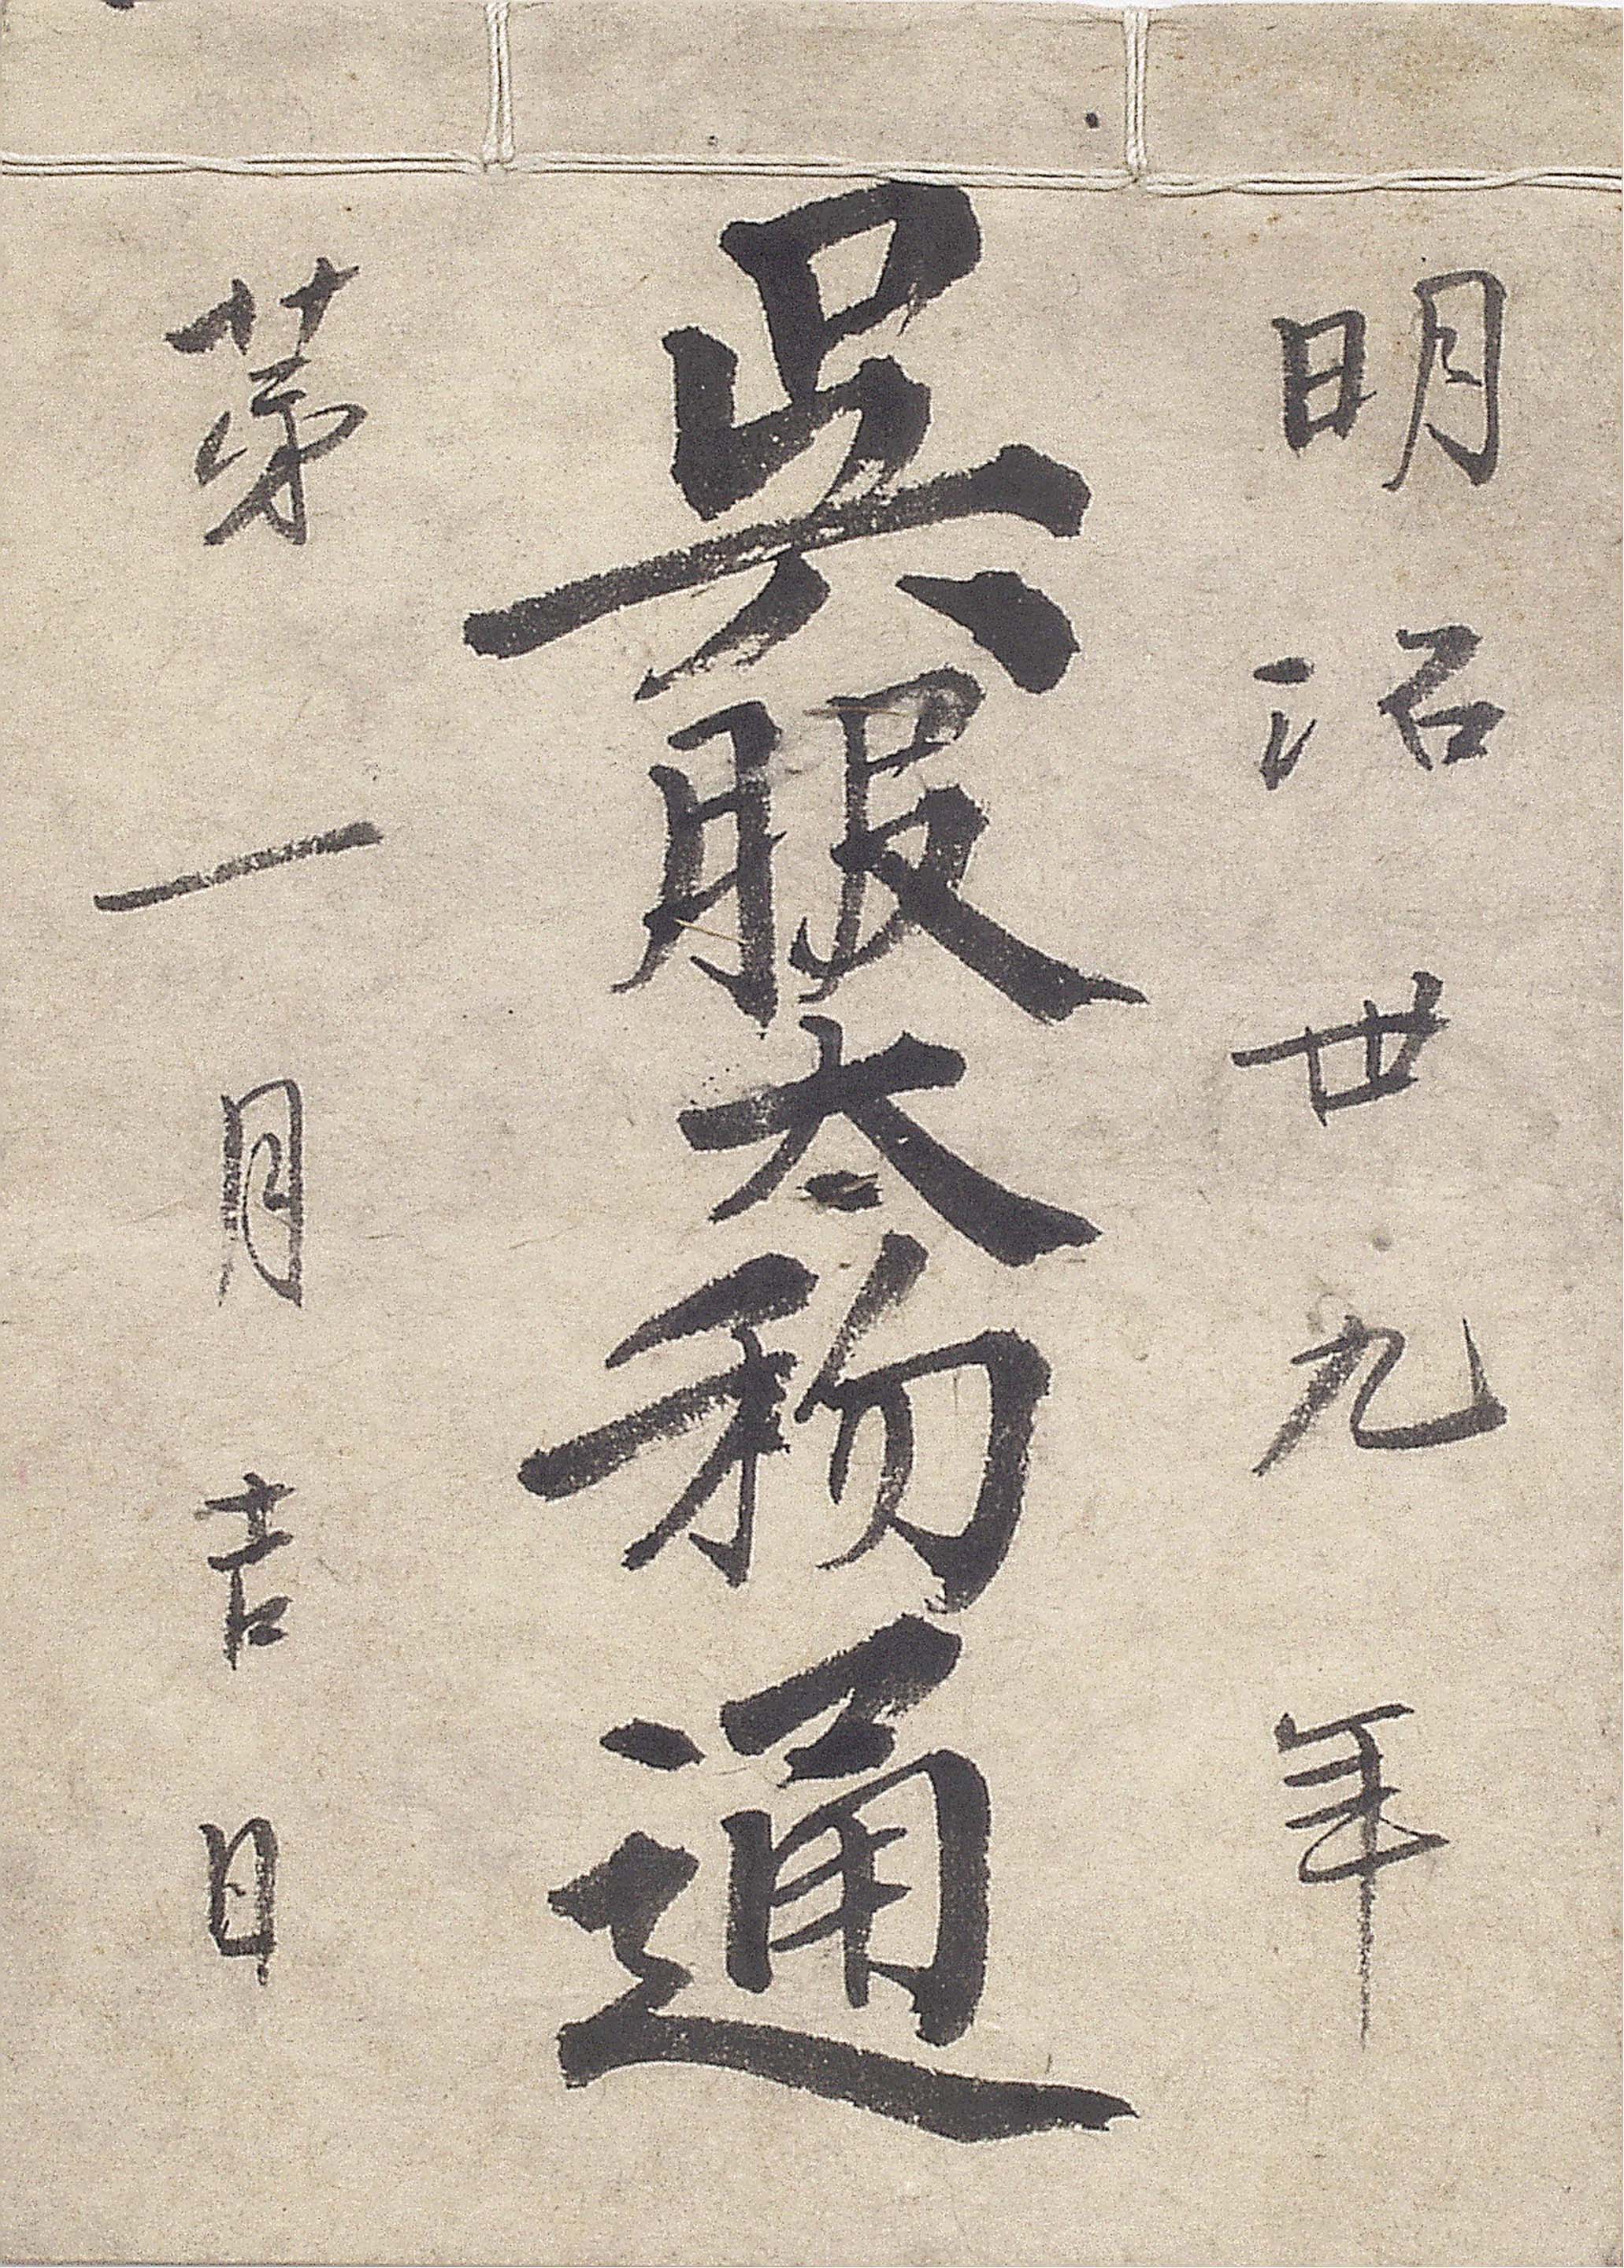 明治廿九年
呉服太物通
第一月吉日